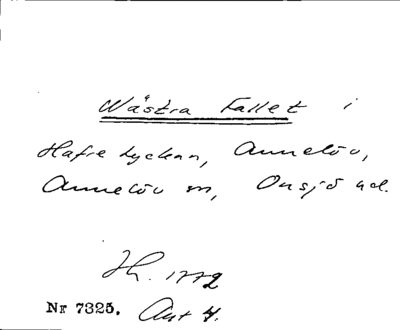 Wästra Fallet i
Hafre Lyckan, Annelöv,
Annelöv sn, Onsjö hd.
Hh. 1772
Nr 7325. Akt 4.